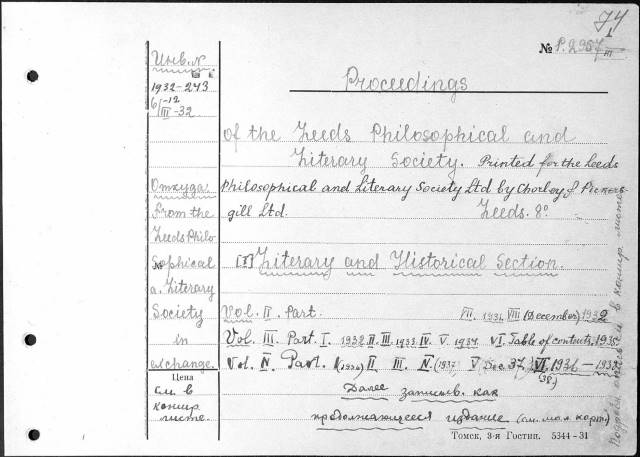 74
№ P.2957 I/III
Инв. №
1932-243
6/III-32
-12
Откуда
From the
Leeds Philo
sophical
a. Literary
Society
in
exchange.
Цена
см. в
концир.
листе
Proceedings
of the Leeds Philosophical and
Literary Society. Printed for the Leeds
Philosophical and Literary Society Ltd by Chorley & Pickers-
gill Ltd. Leeds. 8°.
[I] Literary and Historical Section.
Vol. II. Part. VII. 1931. VIII (December) 1932
Vol. III. Part. I. 1932. II. III. 1933. IV. V. 1934. VI. Table of contents, 1935.
Vol. IV. Part. I (1936) II. III. IV. (1937) V Dec. 37, VI. 1936-1938
(38)
Далее записыв. как
продолжающееся издание (см. мал. карт.)
Томск, 3-я Гостип. 5344-31